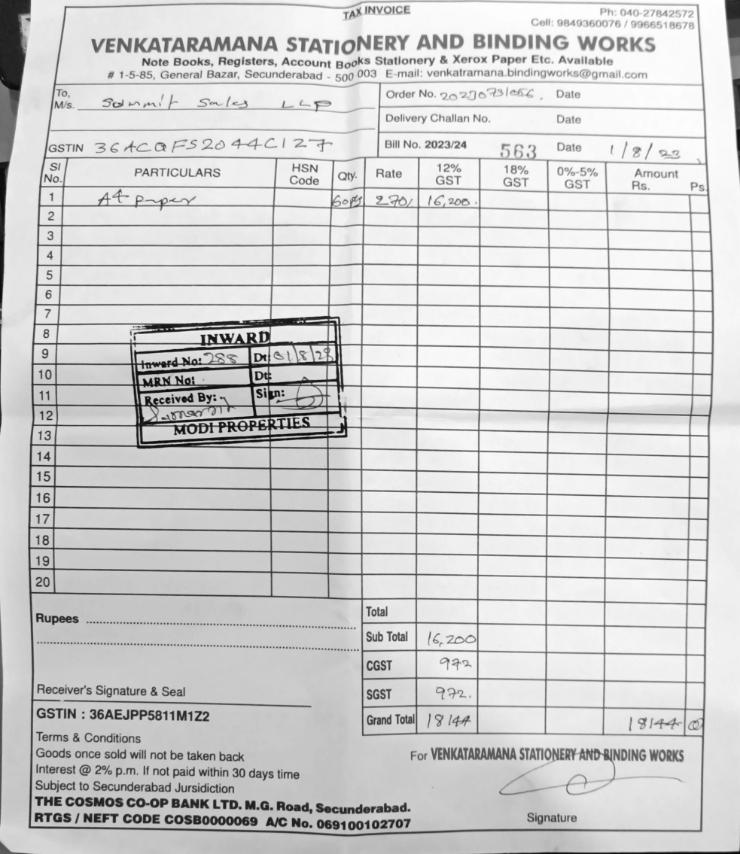 TAX INVOICE
Ph: 040-27842572
Cell: 9849360076 / 9966518678
VENKATARAMANA STATIONERY AND BINDING WORKS
Note Books, Registers, Account Books Stationery & Xerox Paper Etc. Available
# 1-5-85, General Bazar, Secunderabad - 500 003 E-mail: venkatramana.bindingworks@gmail.com
To,
M/s. Summit Sales LLP
GSTIN 36ACQFS2044C1Z7
Order No. Date
Delivery Challan No. Date
Bill No. 2023/24 563 Date 1/8/23
Sl No. PARTICULARS HSN Code Qty. Rate 12% GST 18% GST 0%-5% GST Amount Rs. Ps.
1 A4 paper 270/ 16,200.
2
3
4
5
6
7
8
9
10
11
12
13
14
15
16
17
18
19
20
INWARD
Inward No: 288 Dt: 01/8/23
MRN No: Dt:
Received By: Sign:
MODI PROPERTIES
Rupees
Total
Sub Total 16,200
CGST 972
SGST 972.
Grand Total 18144 18144
Receiver's Signature & Seal
GSTIN : 36AEJPP5811M1Z2
Terms & Conditions
Goods once sold will not be taken back
Interest @ 2% p.m. If not paid within 30 days time
Subject to Secunderabad Jursidiction
THE COSMOS CO-OP BANK LTD. M.G. Road, Secunderabad.
RTGS / NEFT CODE COSB0000069 A/C No. 069100102707
For VENKATARAMANA STATIONERY AND BINDING WORKS
Signature